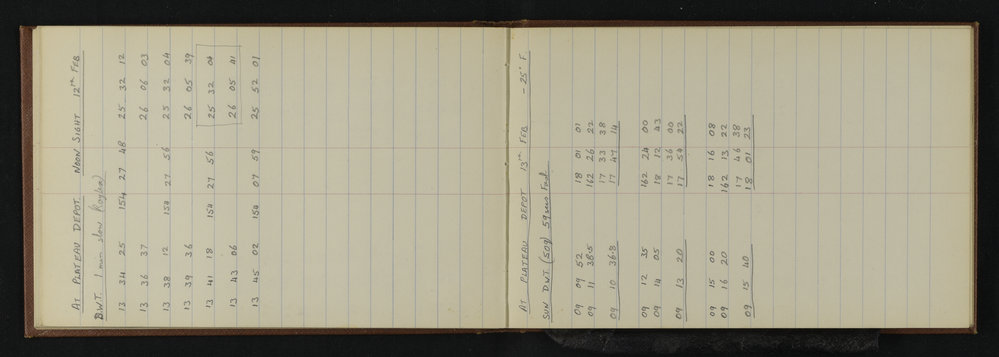 AT PLATEAU DEPOT. NOON SIGHT 12TH FEB
BWT. 1 min slow
13 34 25 154 27 48 25 32 12
13 36 37 26 06 03
13 38 12 154 27 56 25 32 04
13 39 36 26 05 39
13 41 18 154 27 56 25 32 04
13 43 06 26 05 41
13 45 02 154 07 59 25 52 01
AT PLATEAU DEPOT 13TH FEB -25° F.
SUN DWT. (509) 59 secs Fast
09 09 52 18 01 01
09 11 38.5 162 26 22
17 33 38
09 10 36.8 17 47 14
09 12 35 162 24 00
09 14 05 18 12 43
17 36 00
09 13 20 17 54 22
09 15 00 18 16 08
09 16 20 162 13 22
17 46 38
09 15 40 18 01 23